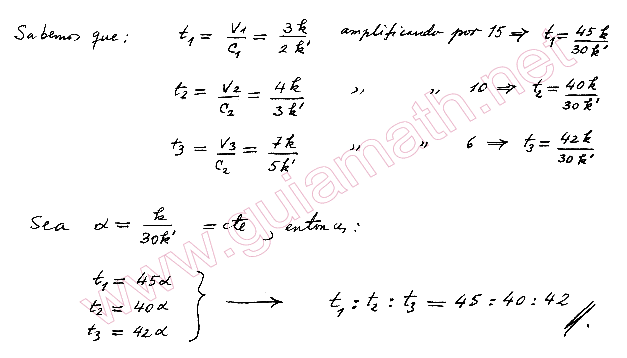 Sabemos que: t₁ = V₁/C₁ = 3k/2k' amplificando por 15 ⇒ t₁ = 45k/30k'
t₂ = V₂/C₂ = 4k/3k' " " 10 ⇒ t₂ = 40k/30k'
t₃ = V₃/C₂ = 7k/5k' " " 6 ⇒ t₃ = 42k/30k'
Sea α = k/30k' = cte, entonces:
t₁ = 45α
t₂ = 40α
t₃ = 42α
} ⟶ t₁ : t₂ : t₃ = 45 : 40 : 42 //.
www.guiamath.net